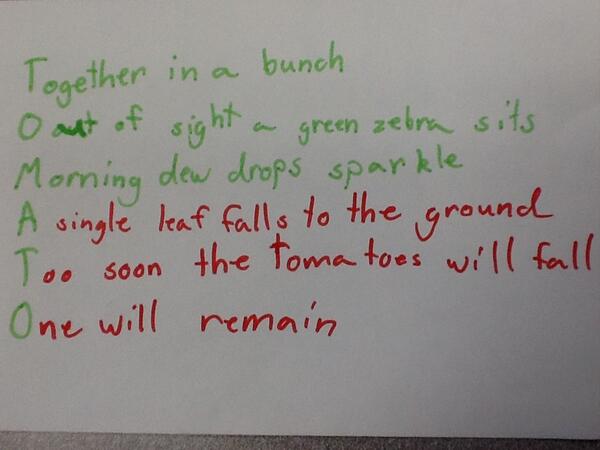 Together in a bunch
Out of sight a green zebra sits
Morning dew drops sparkle
A single leaf falls to the ground
Too soon the tomatoes will fall
One will remain